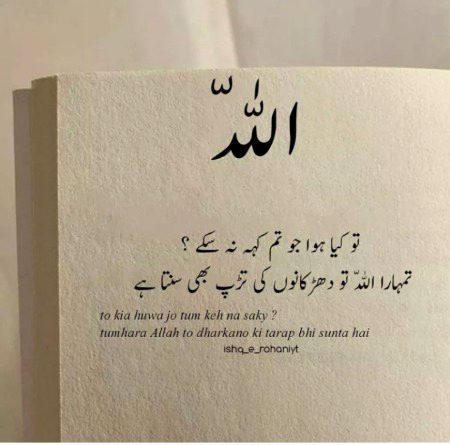 اللہ
تو کیا ہوا جو تم کہہ نہ سکے ؟
تمہارا اللہ تو دھڑکانوں کی تڑپ بھی سنتا ہے
to kia huwa jo tum keh na saky ?
tumhara Allah to dharkano ki tarap bhi sunta hai
ishq_e_rohaniyt